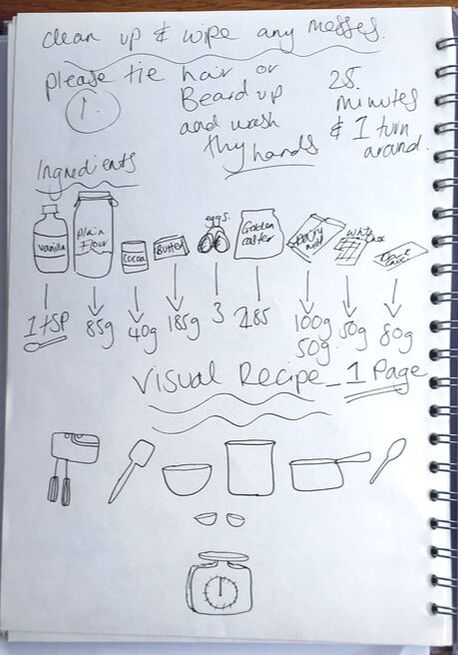 clean up & wipe any messes.
please tie hair or
Beard up
and wash
thy hands
25.
minutes
& 1 turn
around.
1.
Ingredients
vanilla
Plain
Flour
cocoa
Butter
eggs.
Golden
caster
Dairy
milk
White
choc
1 tsp
85g
40g
185g
3
285
100g
50g
50g
80g
Visual Recipe_1 Page